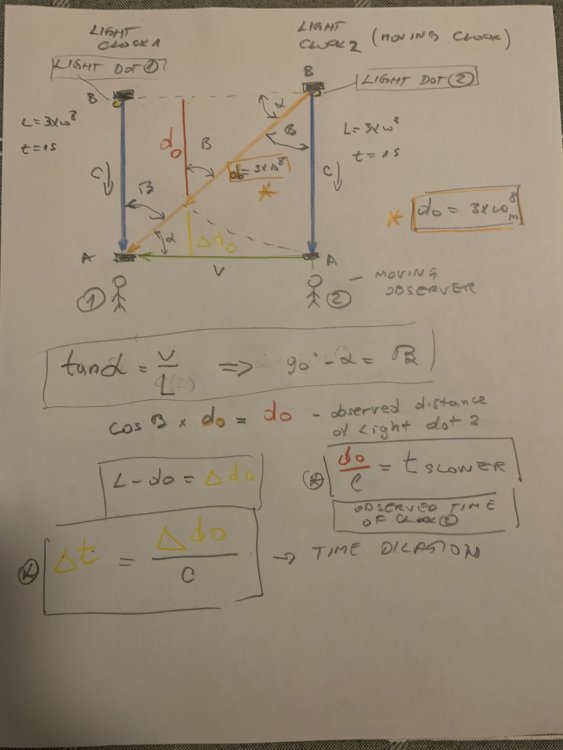 LIGHT
CLOCK 1
LIGHT
CLOCK 2 (MOVING CLOCK)
LIGHT DOT ①
LIGHT DOT ②
B
B
L = 3x10⁸
t = 1s
C
d₀
B
α
B
d₀ = 3x10⁸
*
L = 3x10⁸
t = 1s
C
* d₀ = 3x10⁸ m
B
α
Δd₀
A
A
V
①
②
- MOVING
OBSERVER
tan α = V/L => 90° - α = B
cos B x d₀ = d₀ - observed distance
of Light dot 2
L - d₀ = Δd₀
* d₀/C = t SLOWER
OBSERVED TIME
OF CLOCK ②
* Δt = Δd₀/C → TIME DILATION